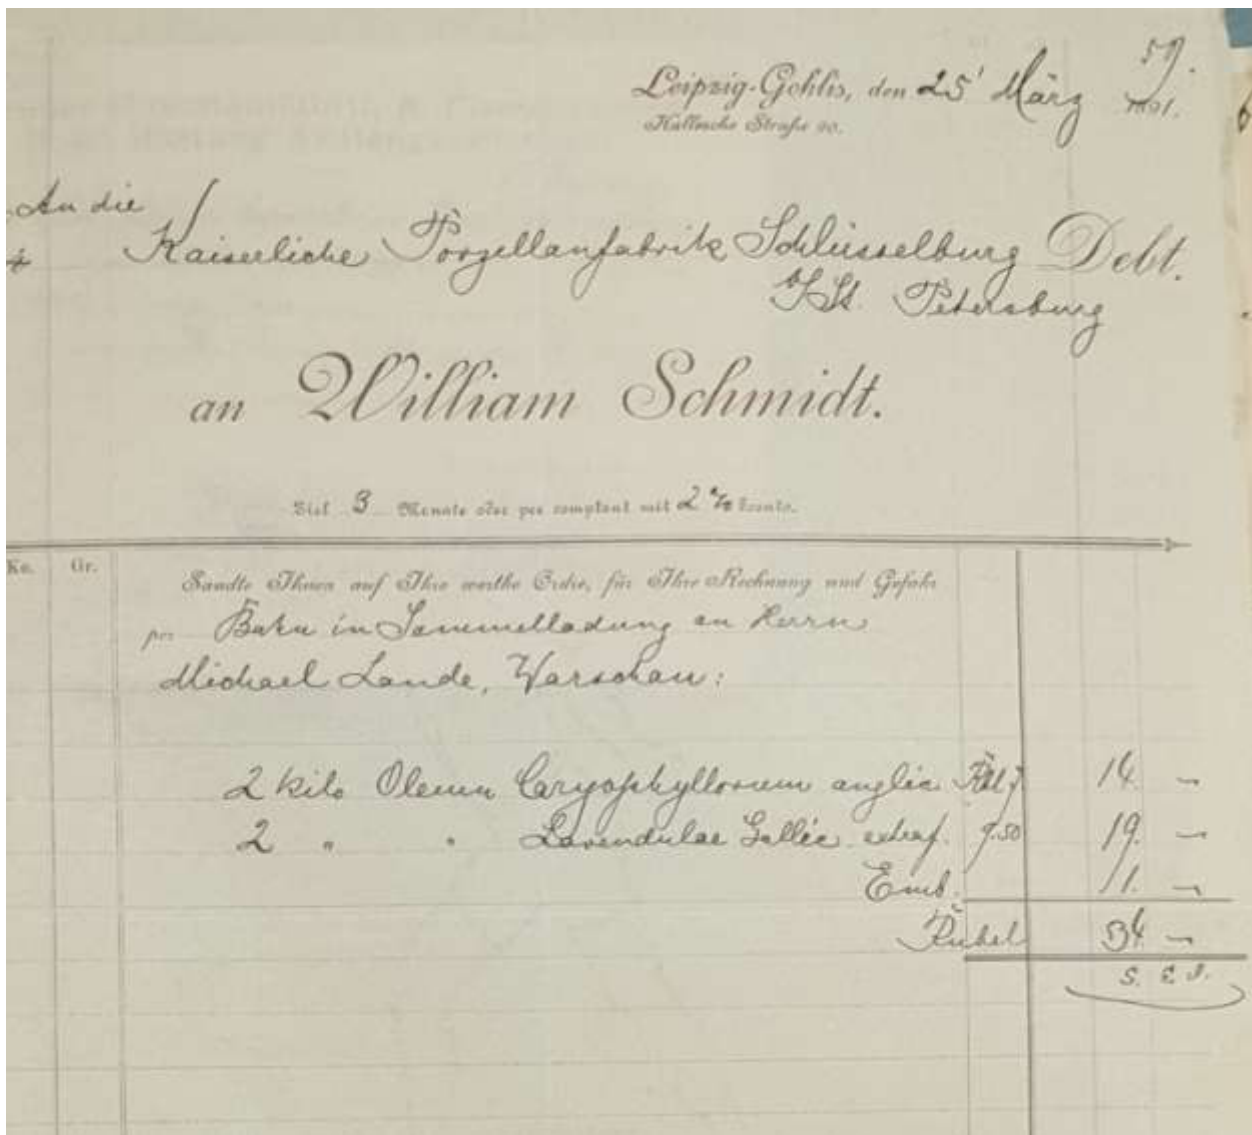 59.
Leipzig-Gohlis, den 25' März 1891.
Hallesche Straße 90.
An die
Kaiserliche Porzellanfabrik Schlüsselburg Debt.
b/St. Petersburg
an William Schmidt.
Ziel 3 Monate oder per comptant mit 2 % Sconto.
Ko. Gr.
Sandte Ihnen auf Ihre werthe Ordre, für Ihre Rechnung und Gefahr
per Bahn in Sammelladung an Herrn
Michael Lande, Warschau:
2 kilo Oleum Caryophyllorum anglic Rbl 7 14. —
2 " " Lavendulae Gallic. extraf. 9.50 19. —
Emb. 1. —
Rubel 34 —
S. E. O.